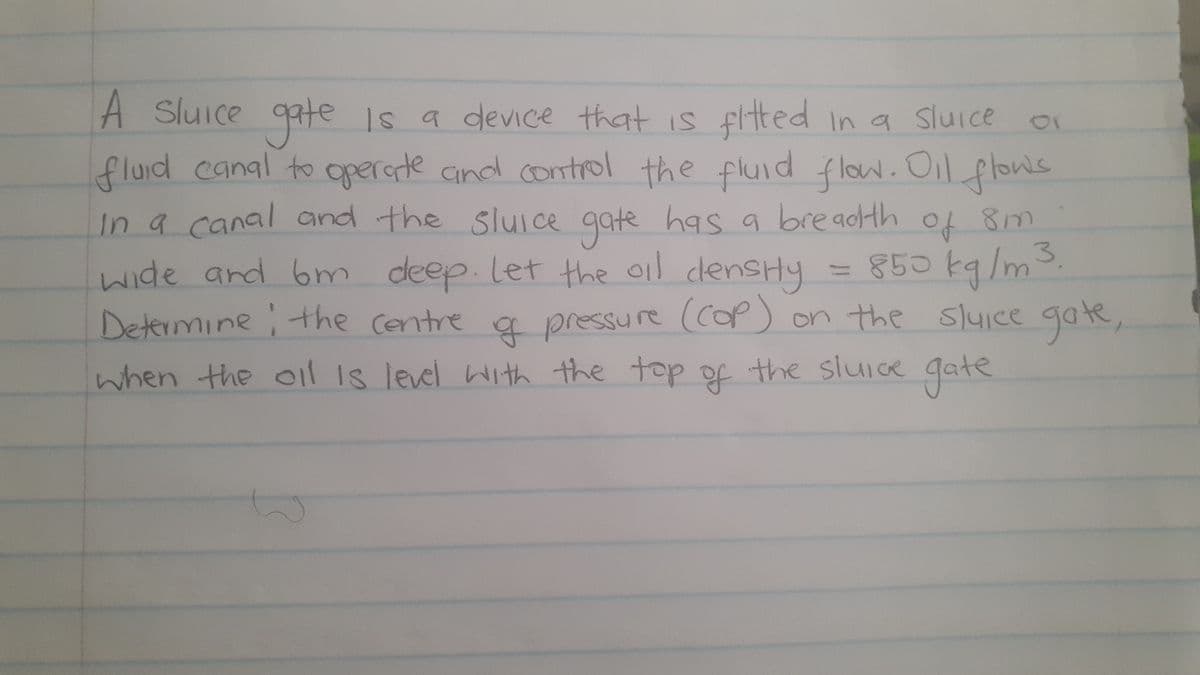 A Sluice gate is a device that is fitted in a sluice or
fluid canal to operate and control the fluid flow. Oil flows
in a canal and the sluice gate has a breadth of 8m
wide and 6m deep. Let the oil density = 850 kg/m³.
Determine ; the centre of pressure (COP) on the sluice gate,
when the oil is level with the top of the sluice gate